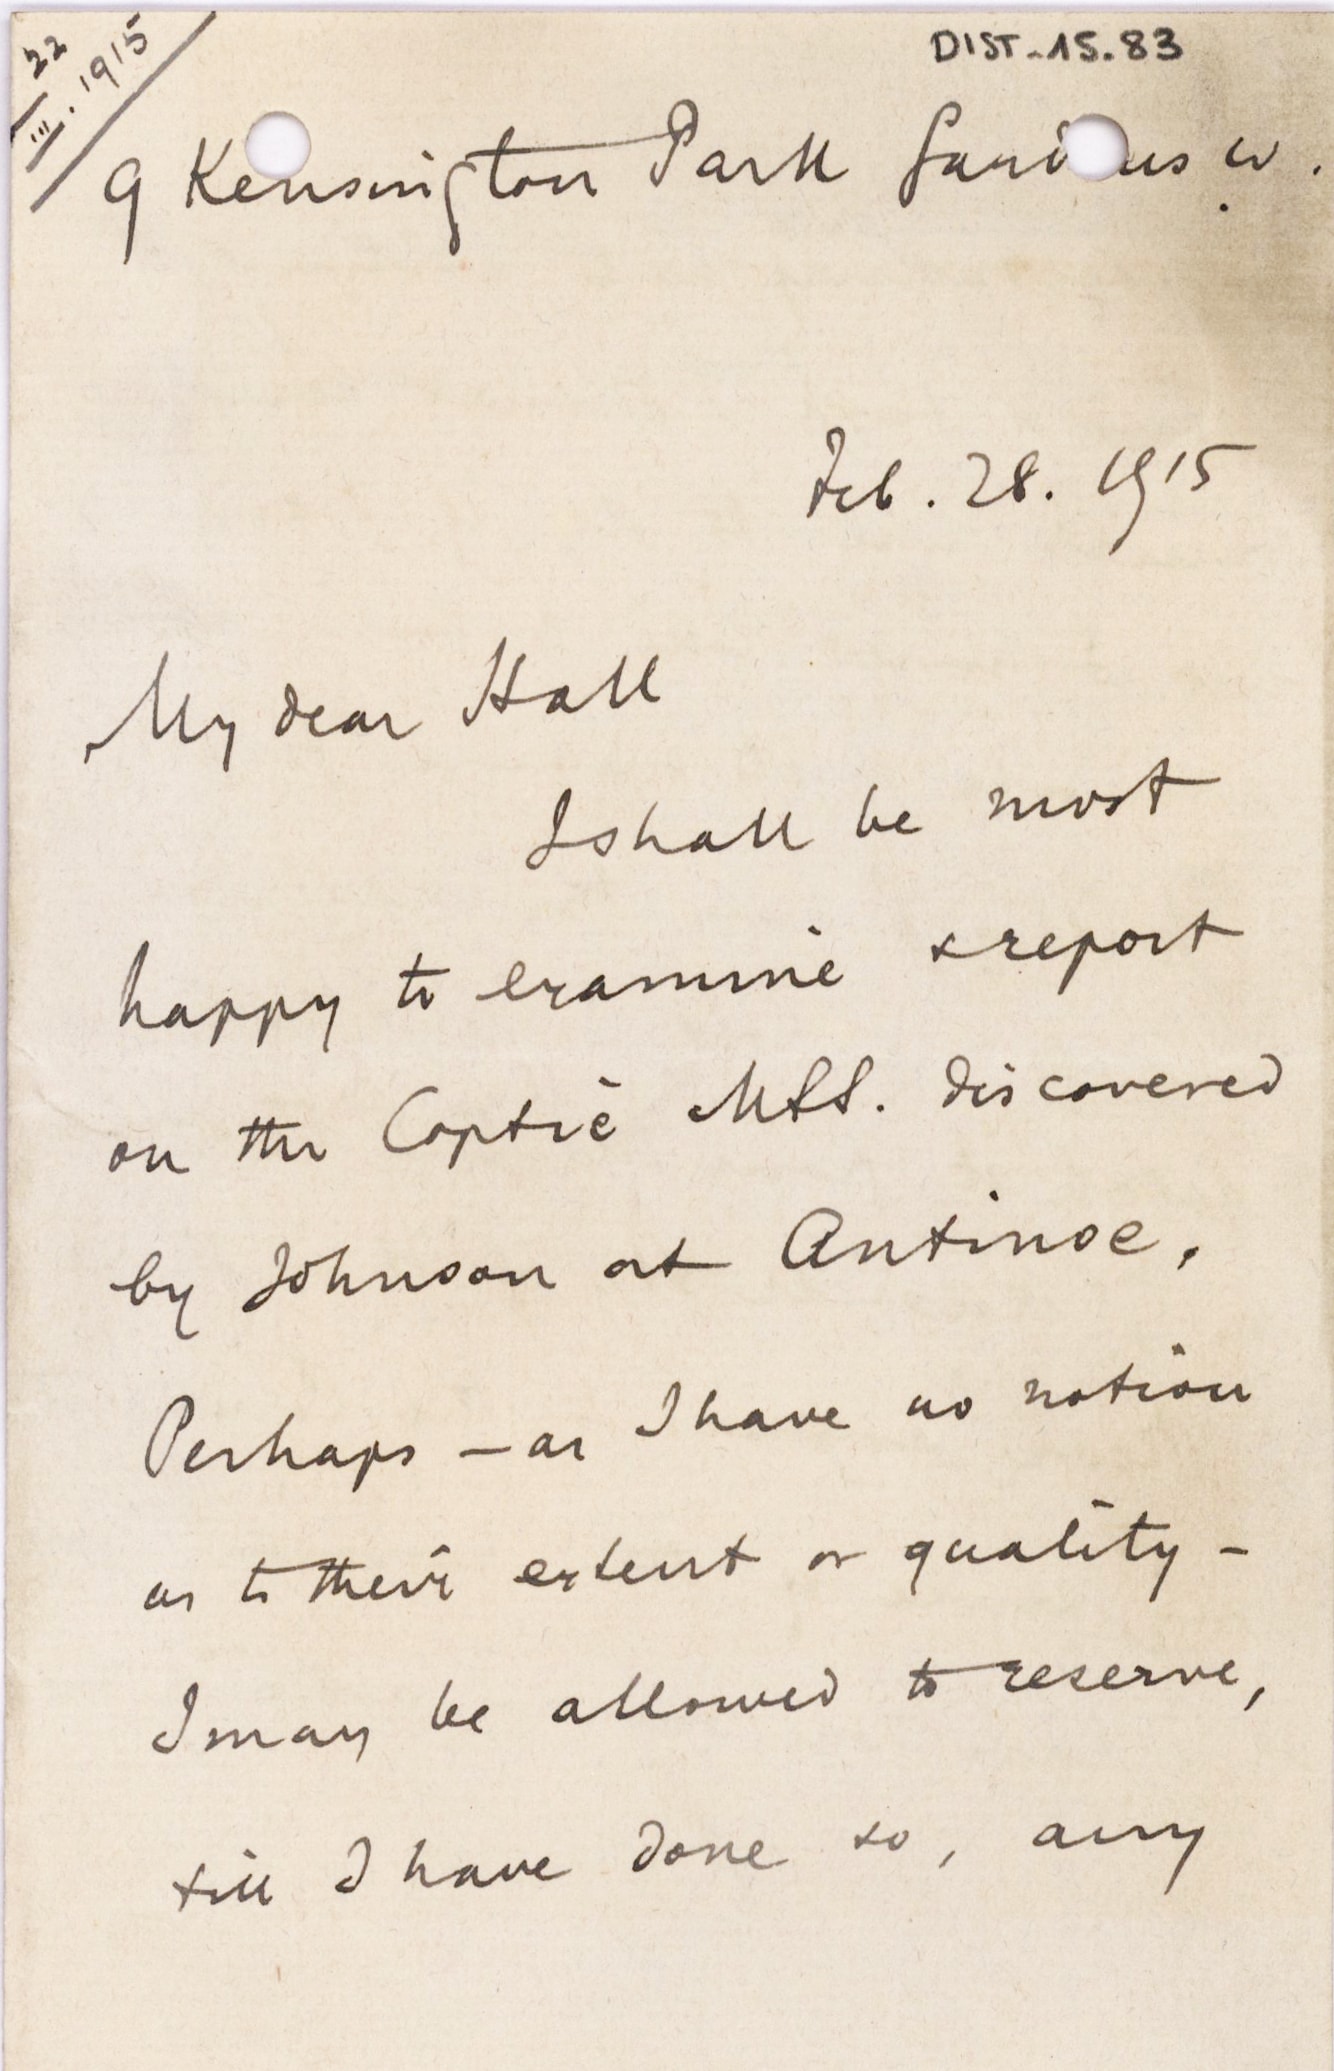 22
III. 1915
DIST-15.83
9 Kensington Park Gardens W.
Feb. 28. 1915
My dear Hall
I shall be most
happy to examine & report
on the Coptic MSS. discovered
by Johnson at Antinoe.
Perhaps – as I have no notion
as to their extent or quality –
I may be allowed to reserve,
till I have done so, any